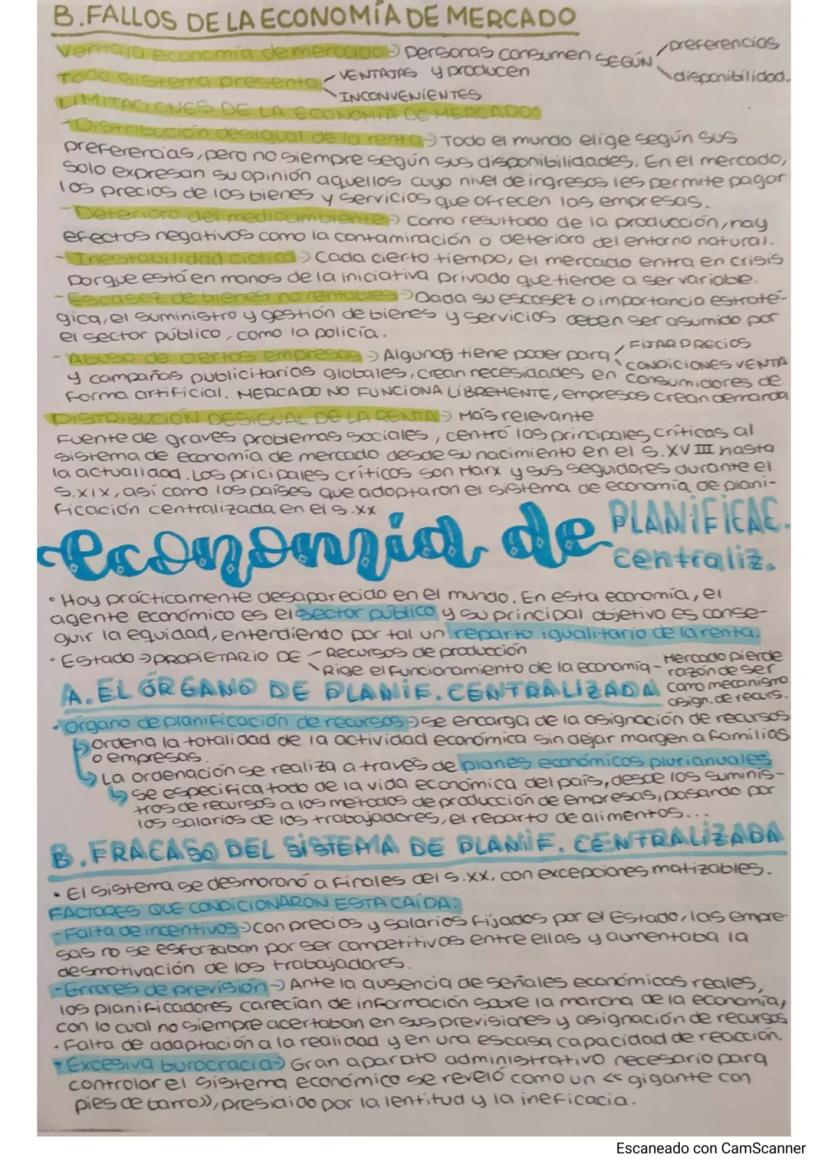 B. FALLOS DE LA ECONOMÍA DE MERCADO
Ventaja economía de mercado → personas consumen y producen SEGÚN preferencias disponibilidad.
Todo sistema presenta VENTAJAS INCONVENIENTES
LIMITACIONES DE LA ECONOMÍA DE MERCADO:
-Distribución desigual de la renta → Todo el mundo elige según sus
preferencias, pero no siempre según sus disponibilidades. En el mercado,
solo expresan su opinión aquellos cuyo nivel de ingresos les permite pagar
los precios de los bienes y servicios que ofrecen las empresas.
- Deterioro del medioambiente → Como resultado de la producción, hay
efectos negativos como la contaminación o deterioro del entorno natural.
- Inestabilidad cíclica → Cada cierto tiempo, el mercado entra en crisis
porque está en manos de la iniciativa privada que tiende a ser variable.
- Escasez de bienes no rentables → Dada su escasez o importancia estraté-
gica, el suministro y gestión de bienes y servicios deben ser asumido por
el sector público, como la policía.
- Abuso de ciertas empresas → Algunas tiene poder para FIJAR PRECIOS CONDICIONES VENTA
y campañas publicitarias globales, crean necesidades en consumidores de
forma artificial. MERCADO NO FUNCIONA LIBREMENTE, empresas crean demanda
DISTRIBUCIÓN DESIGUAL DE LA RENTA → Más relevante
Fuente de graves problemas sociales, centró las principales críticas al
sistema de economía de mercado desde su nacimiento en el s.XVIII hasta
la actualidad. Los pricipales críticos son Marx y sus seguidores durante el
s.XIX, así como los países que adoptaron el sistema de economía de plani-
ficación centralizada en el s.XX
economía de PLANIFICAC.
centraliz.
• Hoy prácticamente desaparecido en el mundo. En esta economía, el
agente económico es el sector público y su principal objetivo es conse-
guir la equidad, entendiendo por tal un reparto igualitario de la renta.
• Estado → PROPIETARIO DE - Recursos de producción
Rige el funcionamiento de la economía - Mercado pierde
razón de ser
como mecanismo
asign. de recurs.
A. EL ÓRGANO DE PLANIF. CENTRALIZADA
-Órgano de planificación de recursos → se encarga de la asignación de recursos
↳ ordena la totalidad de la actividad económica sin dejar margen a familias
o empresas.
↳ La ordenación se realiza a través de planes económicos plurianuales
↳ se especifica todo de la vida económica del país, desde los suminis-
tros de recursos a los métodos de producción de empresas, pasando por
los salarios de los trabajadores, el reparto de alimentos...
B. FRACASO DEL SISTEMA DE PLANIF. CENTRALIZADA
• El sistema se desmoronó a finales del s.XX, con excepciones matizables.
FACTORES QUE CONDICIONARON ESTA CAÍDA:
-Falta de incentivos → con precios y salarios fijados por el Estado, las empre-
sas no se esforzaban por ser competitivos entre ellas y aumentaba la
desmotivación de los trabajadores.
-Errores de previsión → Ante la ausencia de señales económicas reales,
los planificadores carecían de información sobre la marcha de la economía,
con lo cual no siempre acertaban en sus previsiones y asignación de recursos
• Falta de adaptación a la realidad y en una escasa capacidad de reacción.
• Excesiva burocracia → Gran aparato administrativo necesario para
controlar el sistema económico se reveló como un «gigante con
pies de barro», presidido por la lentitud y la ineficacia.
Escaneado con CamScanner